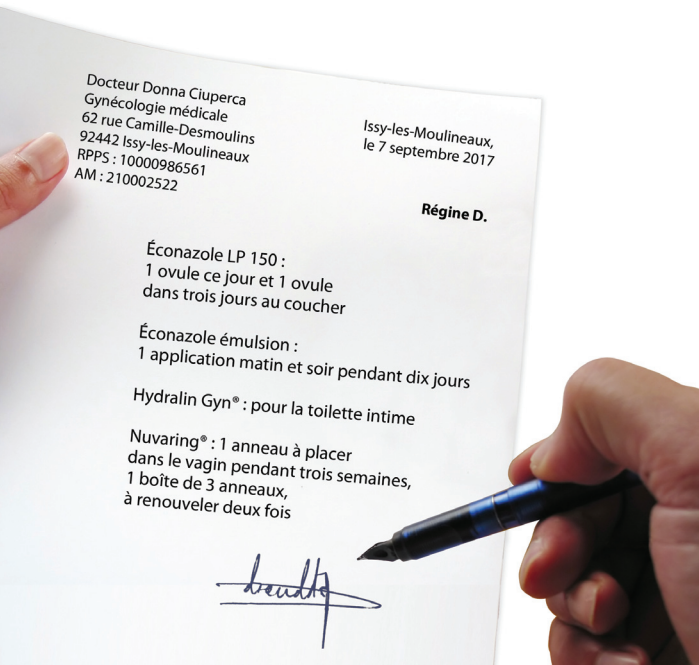 Docteur Donna Ciuperca
Gynécologie médicale
62 rue Camille-Desmoulins
92442 Issy-les-Moulineaux
RPPS : 10000986561
AM : 210002522
Issy-les-Moulineaux,
le 7 septembre 2017
Régine D.
Éconazole LP 150 :
1 ovule ce jour et 1 ovule
dans trois jours au coucher
Éconazole émulsion :
1 application matin et soir pendant dix jours
Hydralin Gyn® : pour la toilette intime
Nuvaring® : 1 anneau à placer
dans le vagin pendant trois semaines,
1 boîte de 3 anneaux,
à renouveler deux fois